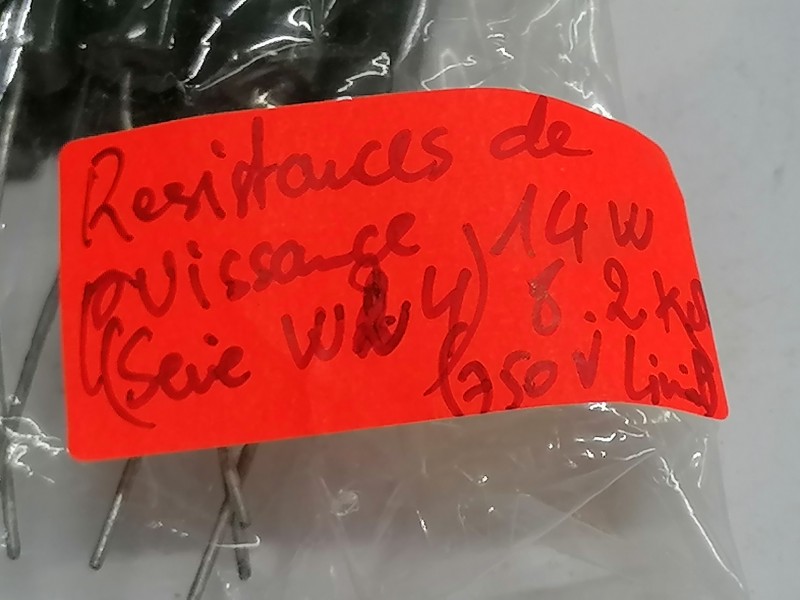 Resistances de
puissance 14 W
(Serie W 4) 8.2 K
(750 V Limit)